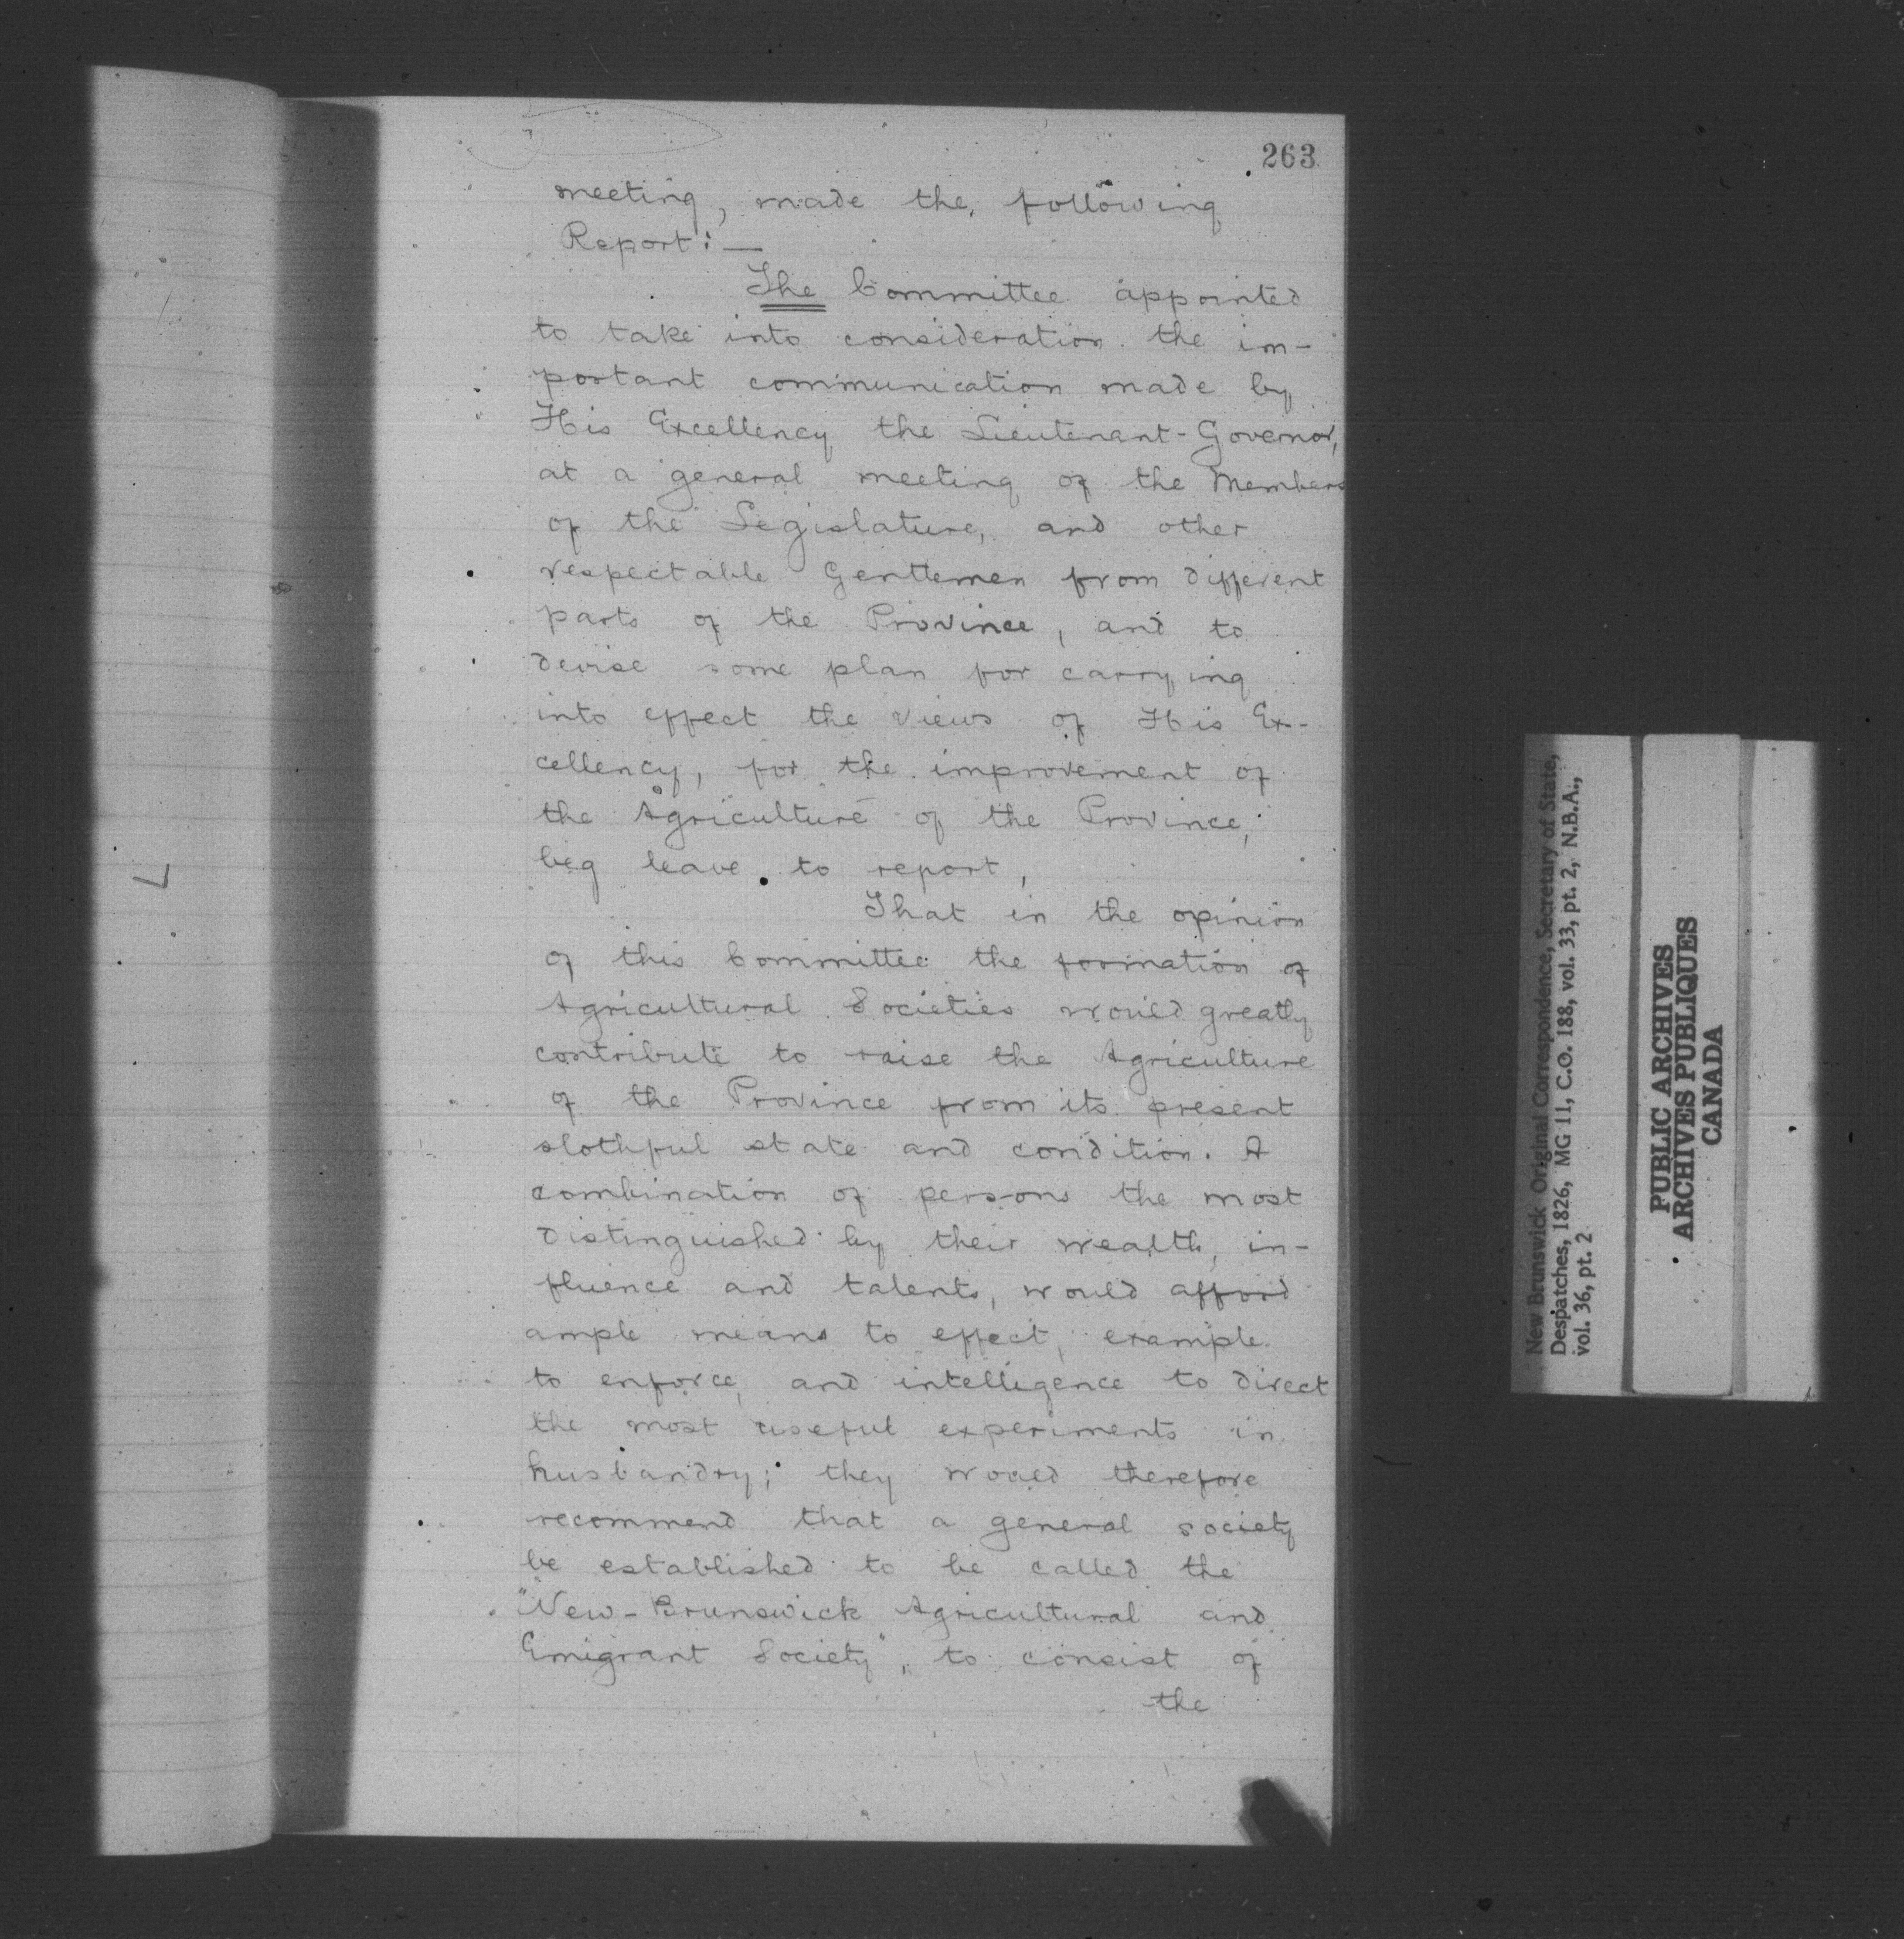 263
meeting, made the following
Report:—
The Committee appointed
to take into consideration the im-
portant communication made by
His Excellency the Lieutenant-Governor,
at a general meeting of the Members
of the Legislature, and other
respectable Gentlemen from different
parts of the Province, and to
devise some plan for carrying
into effect the views of His Ex-
cellency, for the improvement of
the Agriculture of the Province,
beg leave to report,
That in the opinion
of this Committee the formation of
Agricultural Societies would greatly
contribute to raise the Agriculture
of the Province from its present
slothful state and condition. A
combination of persons the most
distinguished by their wealth, in-
fluence and talents, would afford
ample means to effect, example
to enforce, and intelligence to direct
the most useful experiments in
husbandry; they would therefore
recommend that a general society
be established to be called the
"New-Brunswick Agricultural and
Emigrant Society", to consist of
the
New Brunswick Original Correspondence, Secretary of State,
Despatches, 1826, MG 11, C.O. 188, vol. 33, pt. 2, N.B.A.,
vol. 36, pt. 2
PUBLIC ARCHIVES
ARCHIVES PUBLIQUES
CANADA